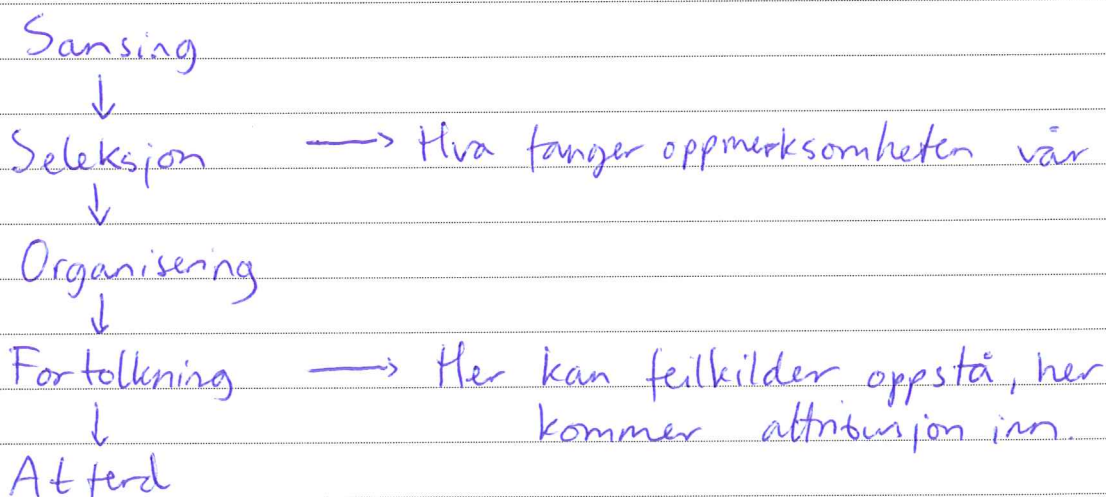 Sansing
↓
Seleksjon → Hva fanger oppmerksomheten vår
↓
Organisering
↓
Fortolkning → Her kan feilkilder oppstå, her
↓ kommer attribusjon inn.
Atferd